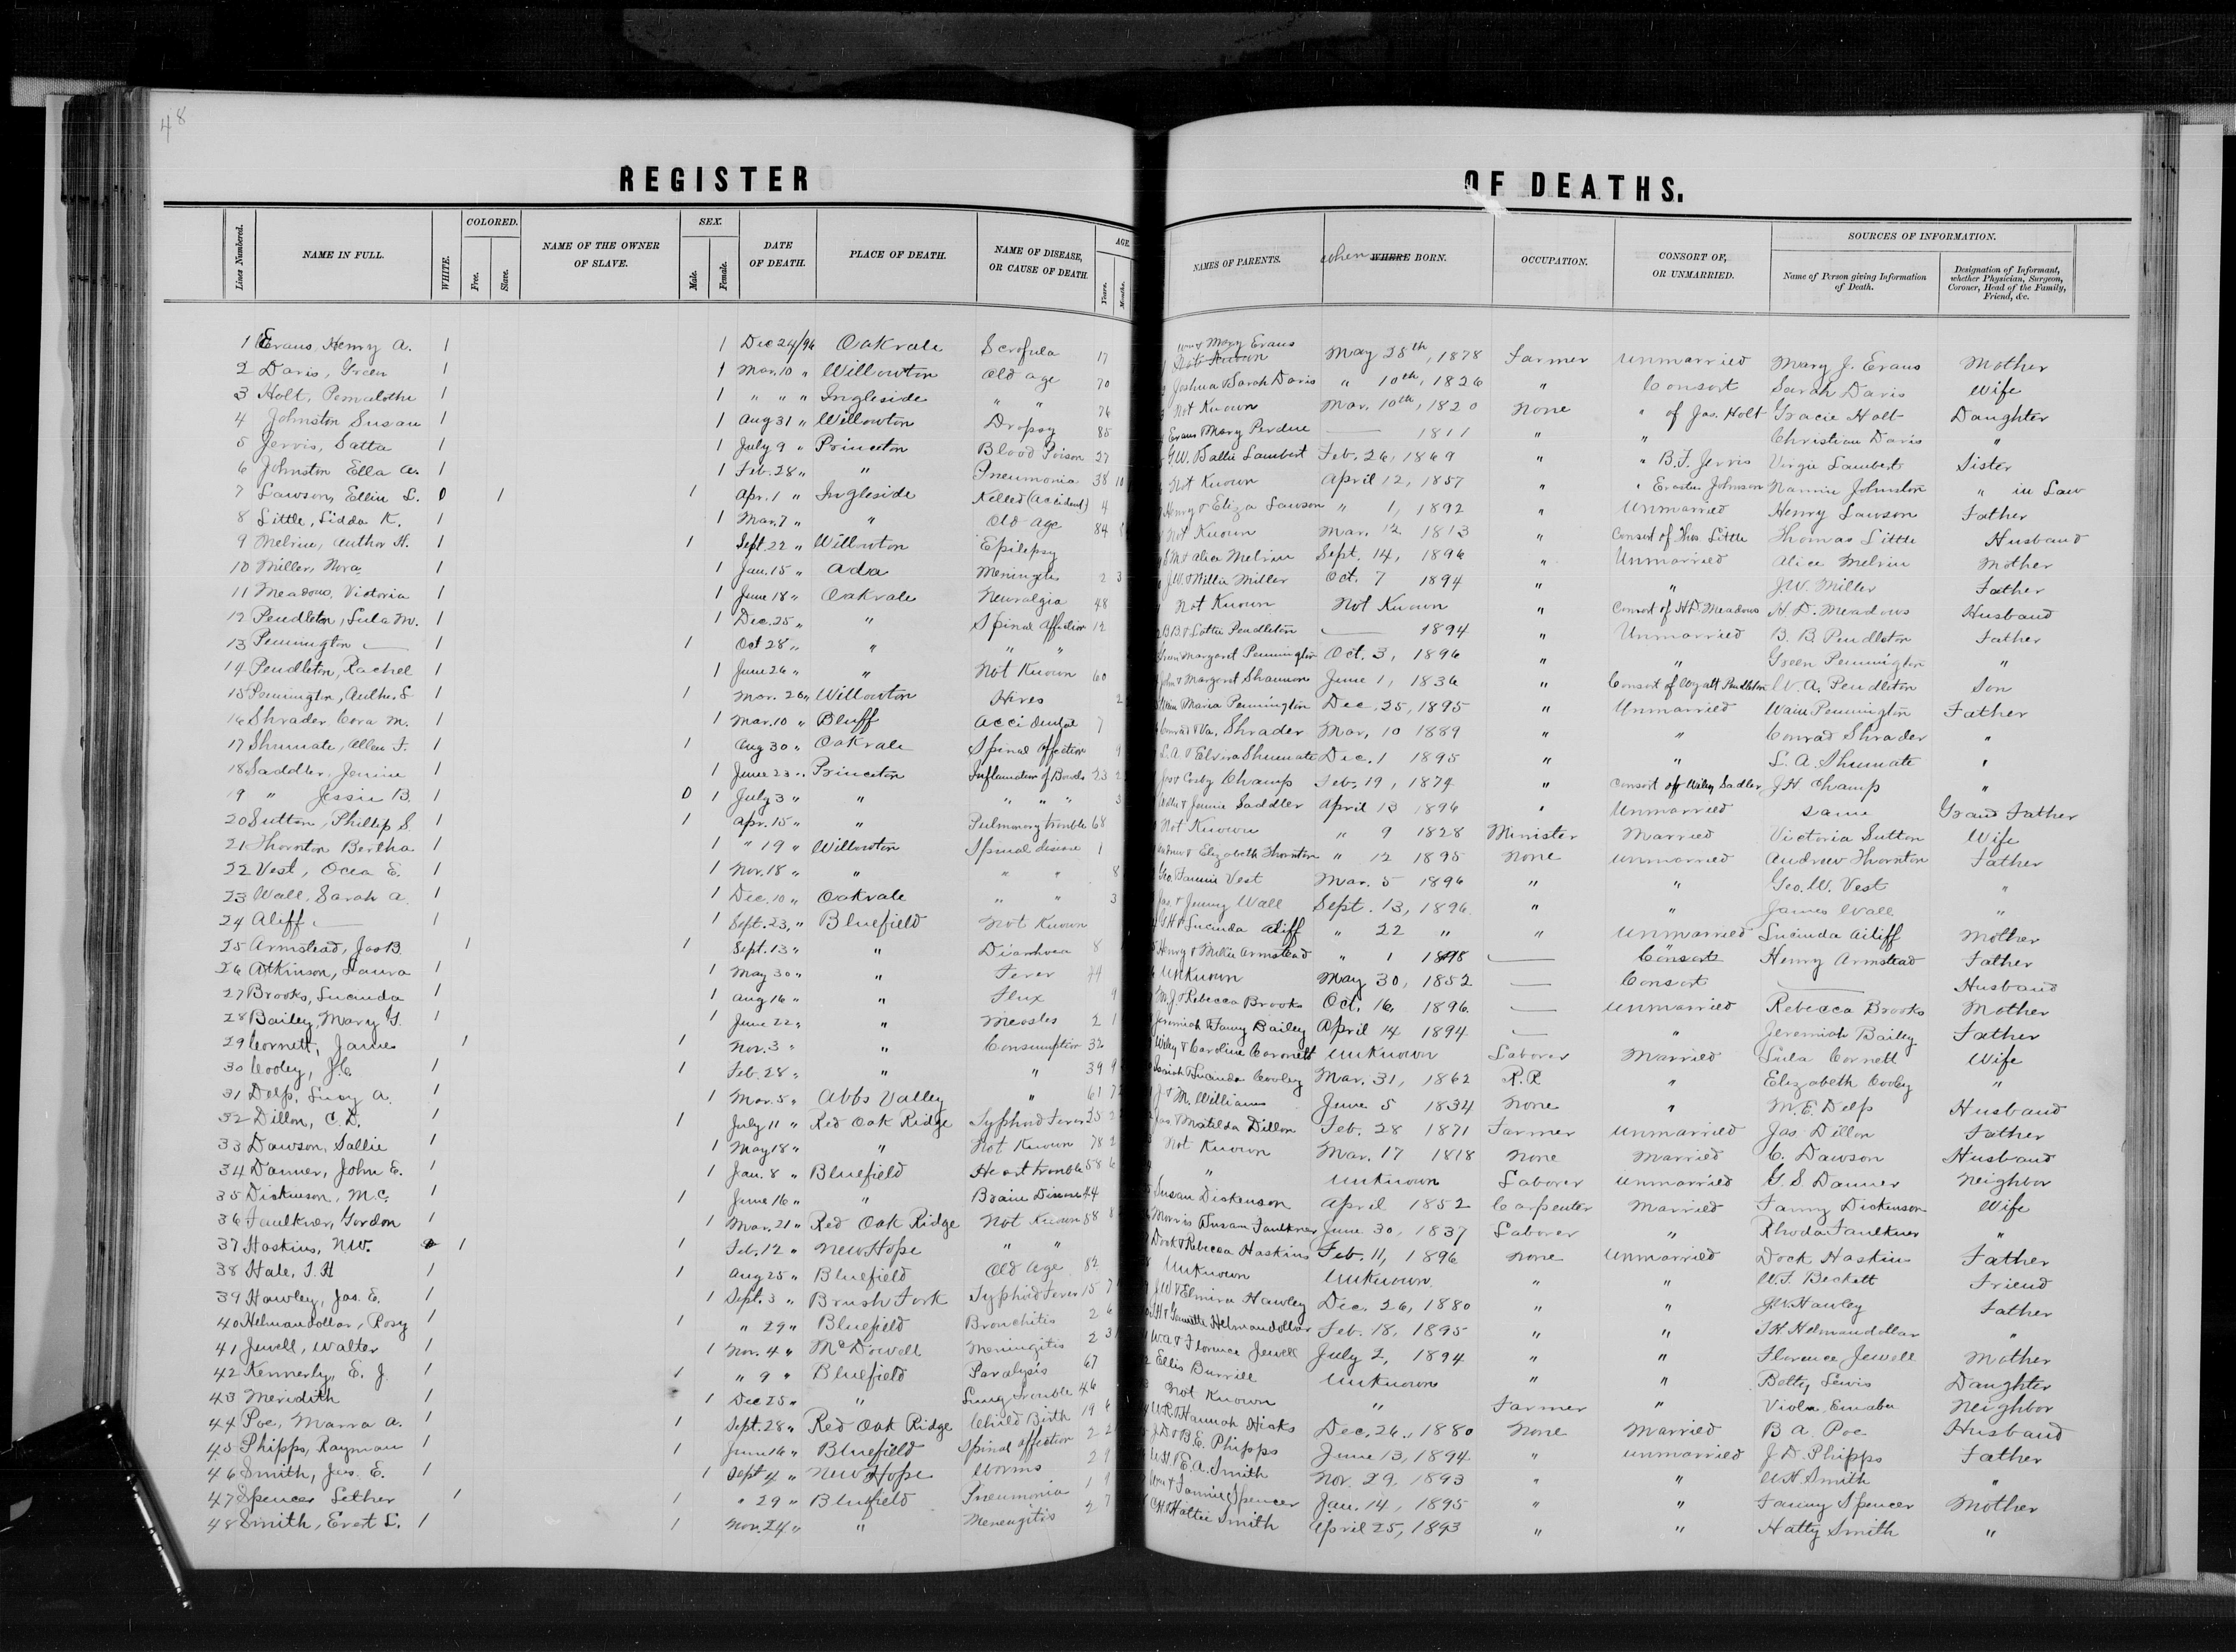 48
REGISTER OF DEATHS.
Lines Numbered. NAME IN FULL. WHITE. COLORED. Free. Slave. NAME OF THE OWNER OF SLAVE. SEX. Male. Female. DATE OF DEATH. PLACE OF DEATH. NAME OF DISEASE, OR CAUSE OF DEATH. AGE. Years. Months. NAMES OF PARENTS. when WHERE BORN. OCCUPATION. CONSORT OF, OR UNMARRIED. SOURCES OF INFORMATION. Name of Person giving Information of Death. Designation of Informant, whether Physician, Surgeon, Coroner, Head of the Family, Friend, &c.
1 Evans, Henry A. 1 1 Dec 24/96 Oakvale Scrofula 17 Wm & Mary Evans Not Known May 28th, 1878 Farmer Unmarried Mary J. Evans Mother
2 Davis, Green 1 1 Mar. 10 " Willowton Old age 70 Joshua & Sarah Davis " 10th, 1826 " Consort Sarah Davis Wife
3 Holt, 1 1 " " " Ingleside " " 76 Not Known Mar. 10th, 1820 None " of Jas. Holt Gracie Holt Daughter
4 Johnston Susan 1 1 Aug 31 " Willowton Dropsy 85 Evans Mary Perdue — 1811 " " Christian Davis "
5 Jervis, Satta 1 1 July 9 " Princeton Blood Poison 27 G.W. Sallie Lambert Feb. 26, 1869 " " B.F. Jervis Virgie Lambert Sister
6 Johnston Ella A. 1 1 Feb. 28 " " Pneumonia 38 10 Not Known April 12, 1857 " " Erastus Johnson Nannie Johnston " in Law
7 Lawson, Ellen L. 0 1 1 Apr. 1 " Ingleside Killed (accident) 4 Henry & Eliza Lawson " 1, 1892 " Unmarried Henry Lawson Father
8 Little, Lidda K. 1 1 Mar. 7 " " Old age 84 Not Known Mar. 12 1813 " Consort of Thos Little Thomas Little Husband
9 Melvin, Author H. 1 1 Sept. 22 " Willowton Epilepsy & Alice Melvin Sept. 14, 1896 " Unmarried Alice Melvin Mother
10 Miller, Nora 1 1 Jan. 15 " Ada Meningitis 2 3 J.W. & Willie Miller Oct. 7 1894 " " J.W. Miller Father
11 Meadows, Victoria 1 1 June 18 " Oakvale Neuralgia 48 Not Known Not Known " Consort of H.D. Meadows H.D. Meadows Husband
12 Pendleton, Lula M. 1 1 Dec. 25 " " Spinal Affection 12 B.B. & Lottie Pendleton — 1894 " Unmarried B. B. Pendleton Father
13 Pennington — 1 1 Oct 28 " " " " Green Margaret Pennington Oct. 3, 1896 " " Green Pennington "
14 Pendleton, Rachel 1 1 June 26 " " Not Known 60 John & Margaret Shannon June 1, 1836 " Consort of Wyatt Pendleton W.A. Pendleton Son
15 Pennington, Auther E 1 1 Mar. 26 " Willowton Hives 2 Maria Pennington Dec. 25, 1895 " Unmarried Wain Pennington Father
16 Shrader, Cora M. 1 1 Mar. 10 " Bluff Accidental 7 Conrad & Va. Shrader Mar. 10 1889 " " Conrad Shrader "
17 Shumate, Allen F. 1 1 Aug 30 " Oakvale Spinal Affection 9 L.A. & Elvira Shumate Dec. 1 1895 " " L. A. Shumate "
18 Saddler, Jennie 1 1 June 23 " Princeton Inflamation of Bowels 23 Jas & Cosby Champ Feb. 19, 1874 " Consort of Wiley Sadler J.H. Champ "
19 " Jessie B. 1 0 1 July 3 " " " " " 3 & Jennie Saddler April 13 1896 " Unmarried Same Grand Father
20 Sutton, Phillip S. 1 1 Apr. 15 " " Pulmonary trouble 68 Not Known " 9 1828 Minister Married Victoria Sutton Wife
21 Thornton Bertha 1 1 " 19 " Willowton Spinal disease 1 Andrew & Elizabeth Thornton " 12 1895 None Unmarried Andrew Thornton Father
22 Vest, Ocea E. 1 1 Nov. 18 " " " " 8 Geo. Fannie Vest Mar. 5 1896 " " Geo. W. Vest "
23 Wall, Sarah A. 1 1 Dec. 10 " Oakvale " " 3 Jas. & Jenny Wall Sept. 13, 1896 " " James Wall "
24 Aliff — 1 1 Sept. 23, " Bluefield Not Known G.H. & Lucinda Aliff " 22 " " Unmarried Lucinda Ailiff Mother
25 Armstead, Jas B. 1 1 Sept. 13 " " Diarrhoea 8 Henry & Millie Armstead " 1 1898 — " Consort Henry Armstead Father
26 Atkinson, Laura 1 1 May 30 " " Fever 44 Unknown May 30, 1852 — Consort — Husband
27 Brooks, Lucinda 1 1 Aug 16 " " Flux 9 M.J. & Rebecca Brooks Oct. 16, 1896 — Unmarried Rebecca Brooks Mother
28 Bailey, Mary G. 1 1 June 22 " " Measles 2 1 Jeremiah & Fanny Bailey April 14 1894 — " Jeremiah Bailey Father
29 Cornett, James 1 1 Nov. 3 " " Consumption 32 Wiley & Caroline Coronett Unknown Laborer Married Lula Cornett Wife
30 Cooley, J.C. 1 1 Feb. 28 " " " 39 9 Isaiah & Lucinda Cooley Mar. 31, 1862 R.R. " Elizabeth Cooley "
31 Delp, Lucy A. 1 1 Mar. 5 " Abbs Valley " 61 J & M. Williams June 5 1834 None " M.E. Delp Husband
32 Dillon, C.D. 1 1 July 11 " Red Oak Ridge Typhoid Fever 25 Jas. & Matilda Dillon Feb. 28 1871 Farmer Unmarried Jas Dillon Father
33 Dawson, Sallie 1 1 May 18 " " Not Known 78 2 Not Known Mar. 17 1818 None Married C. Dawson Husband
34 Danner, John E. 1 1 Jan. 8 " Bluefield Heart trouble 58 6 " Unknown Laborer Unmarried G.S. Danner Neighbor
35 Dickenson, M.C. 1 1 June 16 " " Brain Disease 44 Susan Dickenson April 1852 Carpenter Married Fanny Dickenson Wife
36 Faulkner, Gordon 1 1 Mar. 21 " Red Oak Ridge Not Known 58 8 Morris & Susan Faulkner June 30, 1837 Laborer " Rhoda Faulkner "
37 Haskins, N.W. 1 1 Feb. 12 " New Hope " " Dock & Rebecca Haskins Feb. 11, 1896 None Unmarried Dock Haskins Father
38 Hale, I.H 1 1 Aug 25 " Bluefield Old Age 82 Unknown Unknown " " W.F. Beckett Friend
39 Hawley, Jas. E. 1 1 Sept. 3 " Brush Fork Typhoid Fever 15 J.W & Elmira Hawley Dec. 26, 1880 " " J.W. Hawley Father
40 Helmandollar, Rosy 1 1 " 29 " Bluefield Bronchitis 2 6 Helmandollar Feb. 18, 1895 " " Helmandollar "
41 Jewell, Walter 1 1 Nov. 4 " McDowell Meningitis 2 3 W.A. & Florence Jewell July 2, 1894 " " Florence Jewell Mother
42 Kennerly, E. J. 1 1 " 9 " Bluefield Paralysis 67 Ellis Burrill Unknown " " Betty Lewis Daughter
43 Meridith 1 1 Dec 25 " " Lung trouble 46 Not Known " Farmer " Viola Neighbor
44 Poe, Marra A. 1 1 Sept. 28 " Red Oak Ridge Child Birth 19 6 W.R. & Hannah Hicks Dec. 26, 1880 None Married B.A. Poe Husband
45 Phipps, Rayman 1 1 June 16 " Bluefield Spinal affection 2 2 J.D. & B.E. Phipps June 13, 1894 " Unmarried J.D. Phipps Father
46 Smith, Jas. E. 1 1 Sept 4 " New Hope Worms 2 9 W.H. & E.A. Smith Nov. 29, 1893 " " W.H. Smith "
47 Spencer Lether 1 1 " 29 " Bluefield Pneumonia 1 9 Wm & Fannie Spencer Jan. 14, 1895 " " Fanny Spencer Mother
48 Smith, Evert L. 1 1 Nov. 24 " " Menengitis 2 7 C.H. & Hattie Smith April 25, 1893 " " Hatty Smith "